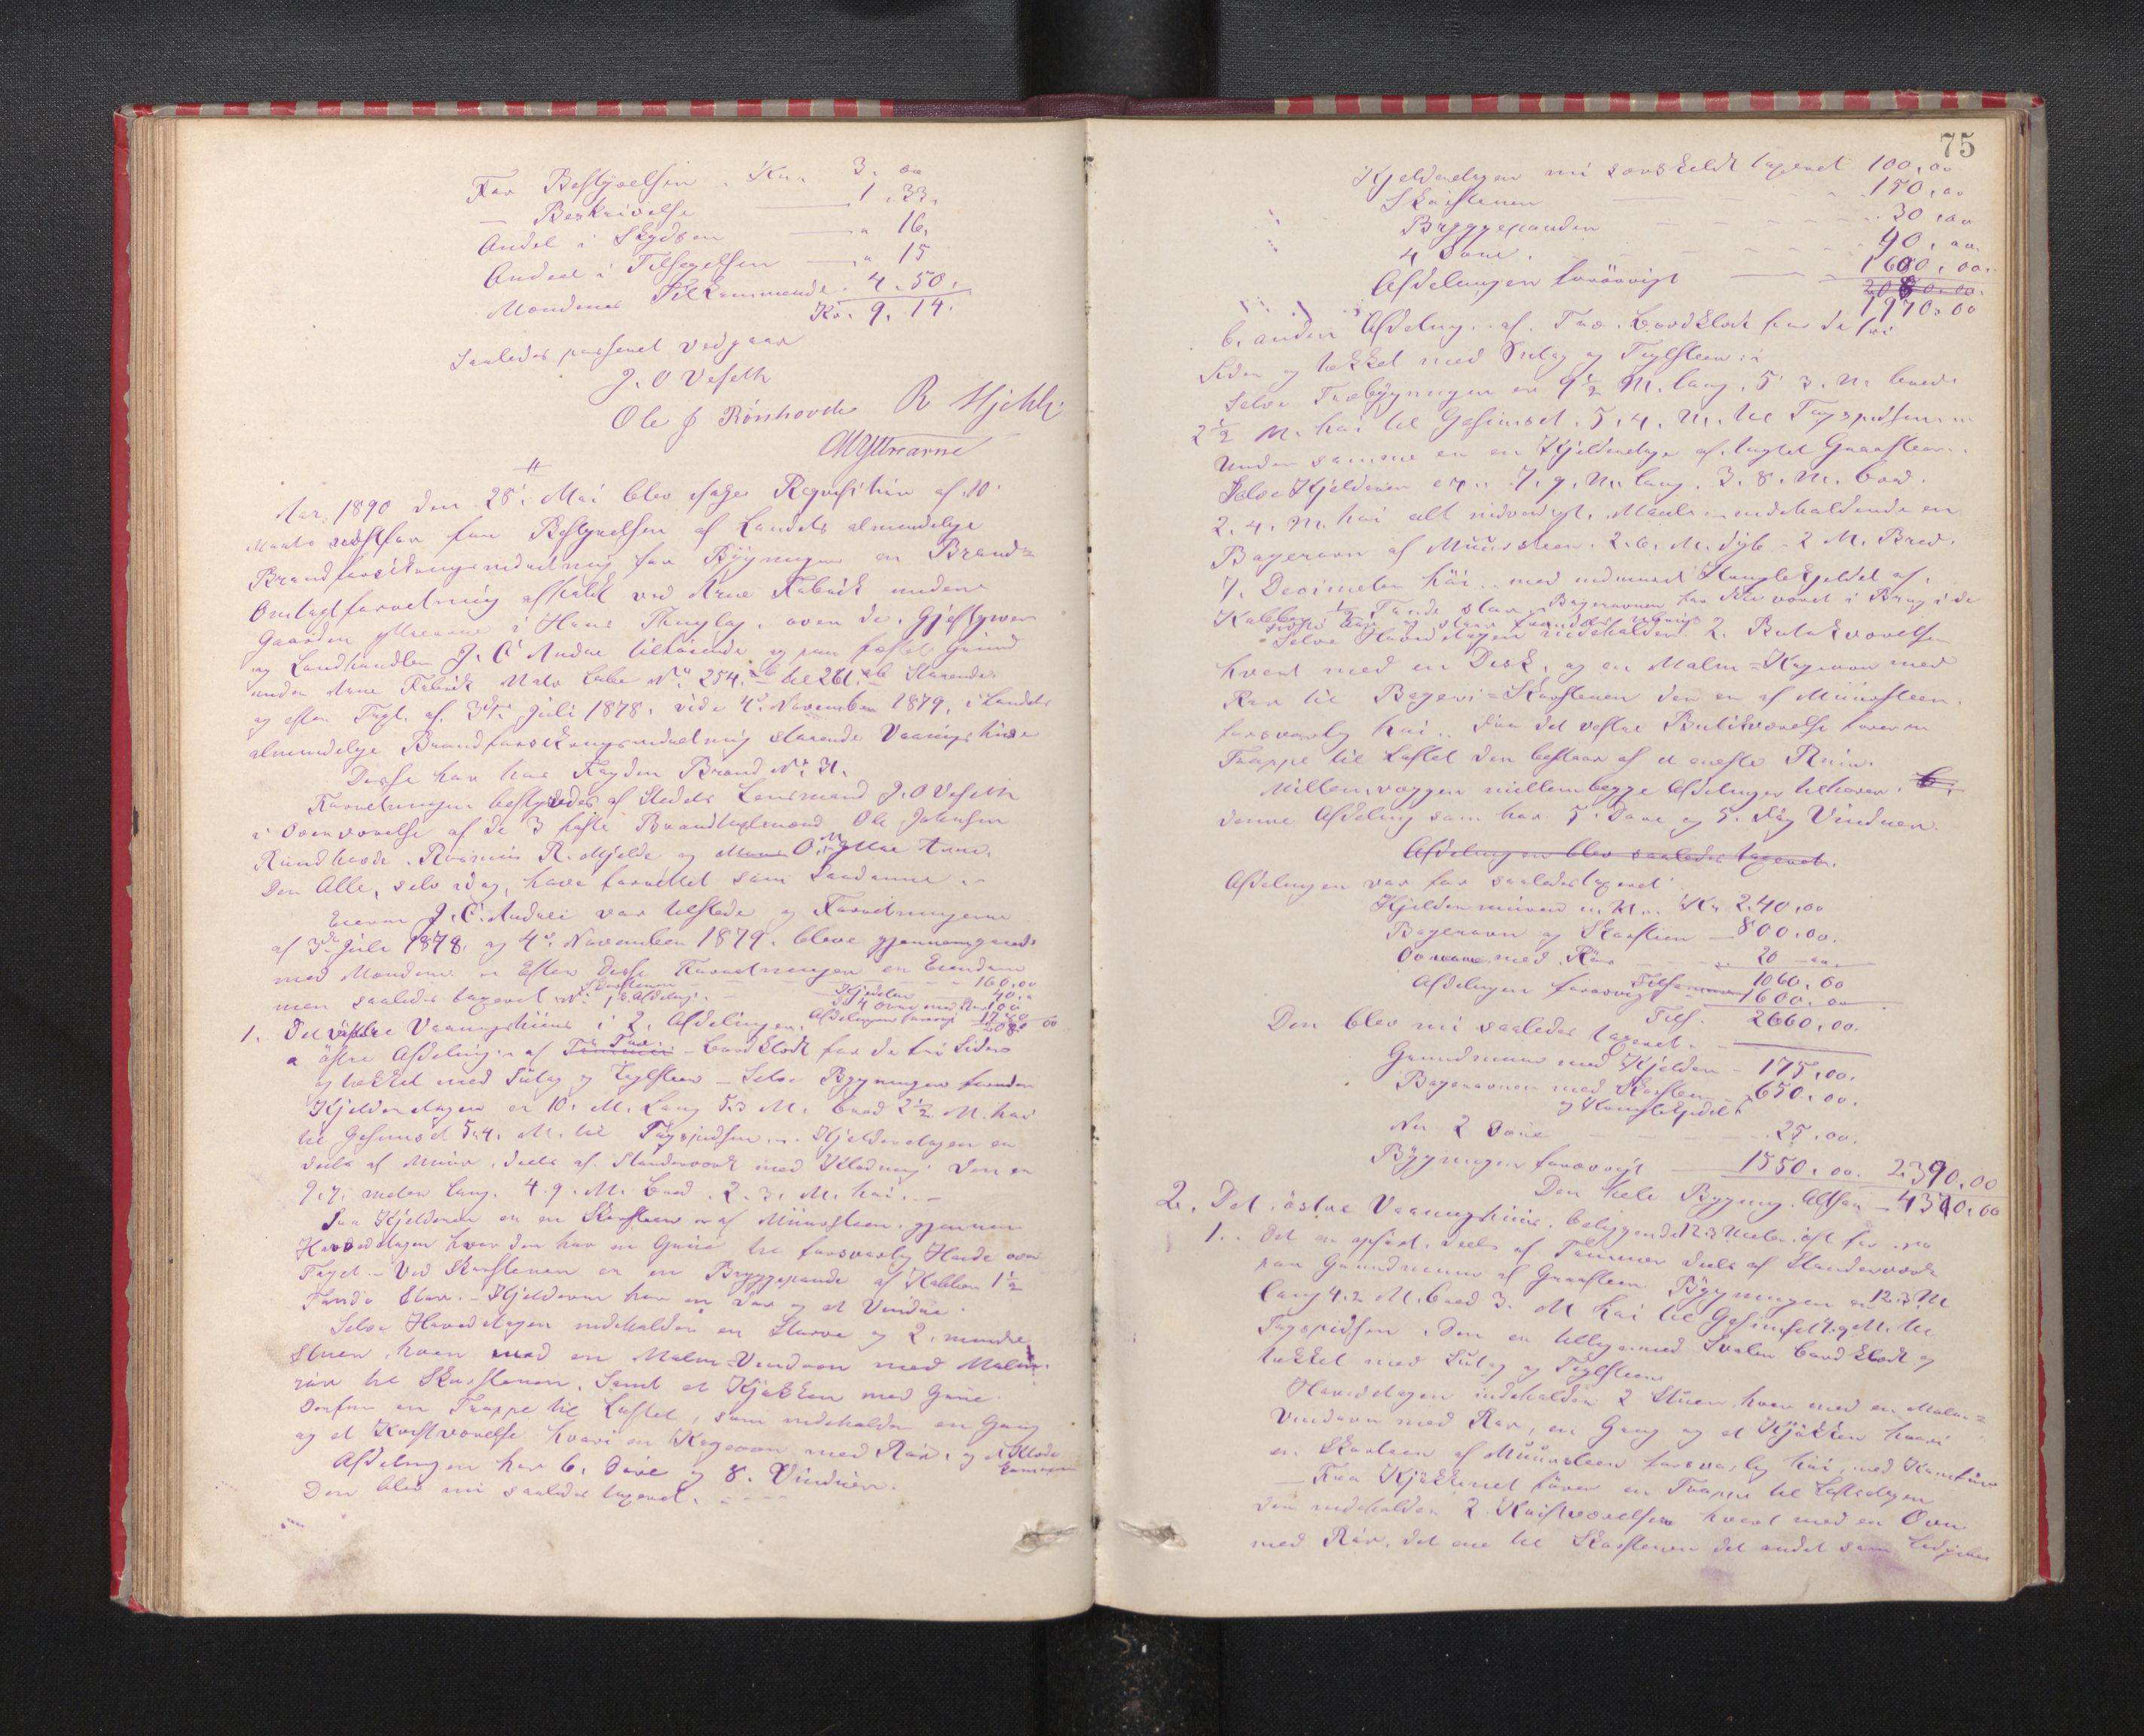 For Bestyrelsen . Kr. 3. 00
— Beskrivelse — 1.33.
Andel i Skydsen — " 16,
Andeel i Tilsigelsen — " 15
Mændenes Tilkommende . 4.50.
Kr. 9.14.
Saaledes passeret vedgaar
J. O Veseth
Ole J Rønhovde R Mjelde
Aar 1890 den 28de Mai blev ifølge Reqvisition af
fra Bestyrelsen af Landets almindelige
Brandforsikringsindretning for Bygninger en Brand-
Omtaxtforretning afholdt ved Arne Fabrik under
Gaarden Ytrearne i Hans Thinglag, over de, Gjestgiver
og Landhandler J. C Andae tilhørende og paa fæstet Grund
under Arne Fabrik Matr Løbe No 254 til 261 staaende
og efter Taxt. af 3die Juli 1878. vide 4de November 1879, i Landets
almindelige Brandforsikringsindretning staaende Vaaningshuse
Disse har hos Fogden Brand No 31.
Forretningen bestyredes af Stedets Lensmand J. O Veseth
i Overværelse af de 3 faste Brandtaxtmænd Ole Johnsen
Rundhovde, Rasmus R. Mjelde og O. M. Ytre Arne.
Den Alle, selv idag, have forrettet som saadanne.
Eieren J. C. Andae var tilstede og Forretningerne
af 3de Juli 1878. og 4de November 1879. bleve gjennemgaaede
med Mændene. Efter disse Forretninger er Eiendom
men saaledes taxeret No 1, a Afdeling. Skorstenen — 160,00
Kjelderen 40.
de 4 Ovne med Rør 100
Afdelingen forøvrigt
1. Det vestre Vaaningshuus i 2. Afdelinger.
a østre Afdeling af Træ - bordklædt for de tri Sider
og tækket med Sutag og Taglsteen - Selve Bygningen foruden
Kjelderetagen er 10. M. lang 5.3 M. bred 2½ M. høi
til Gesimsed 5.4. M. til Tagspidsen. Kjelderetagen er
deels af Muur, deels af Standerværk med Klædning. Den er
9.7. meter lang. 4.9. M. bred. 2.3. M. høi. -
Fra Kjelderen er en Skorsteen af Muursteen, gjennem
Hovedetagen hvor den har en Grue til forsvarlig Høide over
Taget - Ved Skorstenen er en Bryggepande af Kobber 1½
Tønde stor. - Kjelderen har en Dør og et Vindue.
Selve Hovedetagen indeholder en Større og 2. mindre
Stuer, hver med en Malm-Vindovn med Malm
rør til Skorstenen, Samt et Kjøkken med Grue
Derfra en Trappe til Loftet, som indeholder en Gang
og et Kvistværelse hvori en Kogeovn med Rør. og et Klæde
kammer
Afdelingen har 6. Døre og 8. Vinduer.
Den blev nu saaledes taxeret. - - - -
75
Kjelderetagen nu særskildt taxeret 100,00
Skorstenen — 150,00
Bryggepanden — 30,00
4 Ovne — 90,00
Afdelingen forøvrigt — 1600,00
1970,00
b. anden Afdeling. af Træ. bordklædt paa de tre
Sider og tækket med Sutag og Taglsteen
Selve Træbygningen er 9½ M. lang, 5.3. M. bred.
2½ M. høi til Gesimsed. 5.4. M. til Tagspidsen
Under samme er en Kjelderetage af hugget Graasteen.
Selve Kjelderen er 7.9. M. lang. 3.8. M. bred.
2.4. M. høi alt indvendigt Maal indeholdende en
Bagerovn af Muursteen. 2.6. M. dyb - 2 M. Bred.
7. Decimeter høi. med indmuret Kjedel af
Kobber ½ Tønde stor. Bagerovnen har ikke været i Brug i de
Selve Hovedetagen indeholder 2. Butikværelser
hvert med en Disk, og en Malm-Kogeovn med
Rør til Bageri-Skorstenen der er af Muursteen
forsvarlig høi. Fra det vestre Butikværelse fører en
Trappe til Loftet der bestaar af et eneste Rum.
Mellemvæggen mellem begge Afdelinger tilhører
denne Afdeling som har 5. Døre og 5. Fag Vinduer.
Afdelingen blev saaledes taxeret.
Afdelingen var før saaledes taxeret
Kjeldermuren m. M. Kr 240,00
Bagerovn og Skorsteen — 800,00.
Ovnene med Rør — 20 —
Tilsammen 1060,00
Afdelingen forøvrigt — 1600,00
Tils. 2660,00.
Den blev nu saaledes taxeret.
Grundmuur med Kjelder - 175,00.
Bagerovnen med Skorsten 650,00.
Nu 2 Ovne — 25,00.
Bygningen forøvrigt — 1550,00. 2390,00
Den hele Bygning. Altsaa — 4370,00
2. Det østre Vaaningshuus, beliggende 12.3 Meter øst for
1. Det er opført, deels af Tømmer deels af Standerværk
paa Grundmuur af Graasteen Bygningen er 12.3 M
lang 4.2 M. bred 3. M høi til Gesimsed M. til
Tagspidsen. Den er tilligemed Svalen bordklædt og
tækket med Sutag og Taglsteen
Hovedetagen indeholder 2 Stuer hver med en Malm-
Vindovn med Rør, en Gang og et Kjøkken hvori
en Skorsteen af Muursteen forsvarlig høi, med Komfur
- Fra Kjøkkenet fører en Trappe til Loftetagen
den indeholder 2 Kvistværelser hvert med en Ovn
med Rør, det ene til Skorstenen det andet som